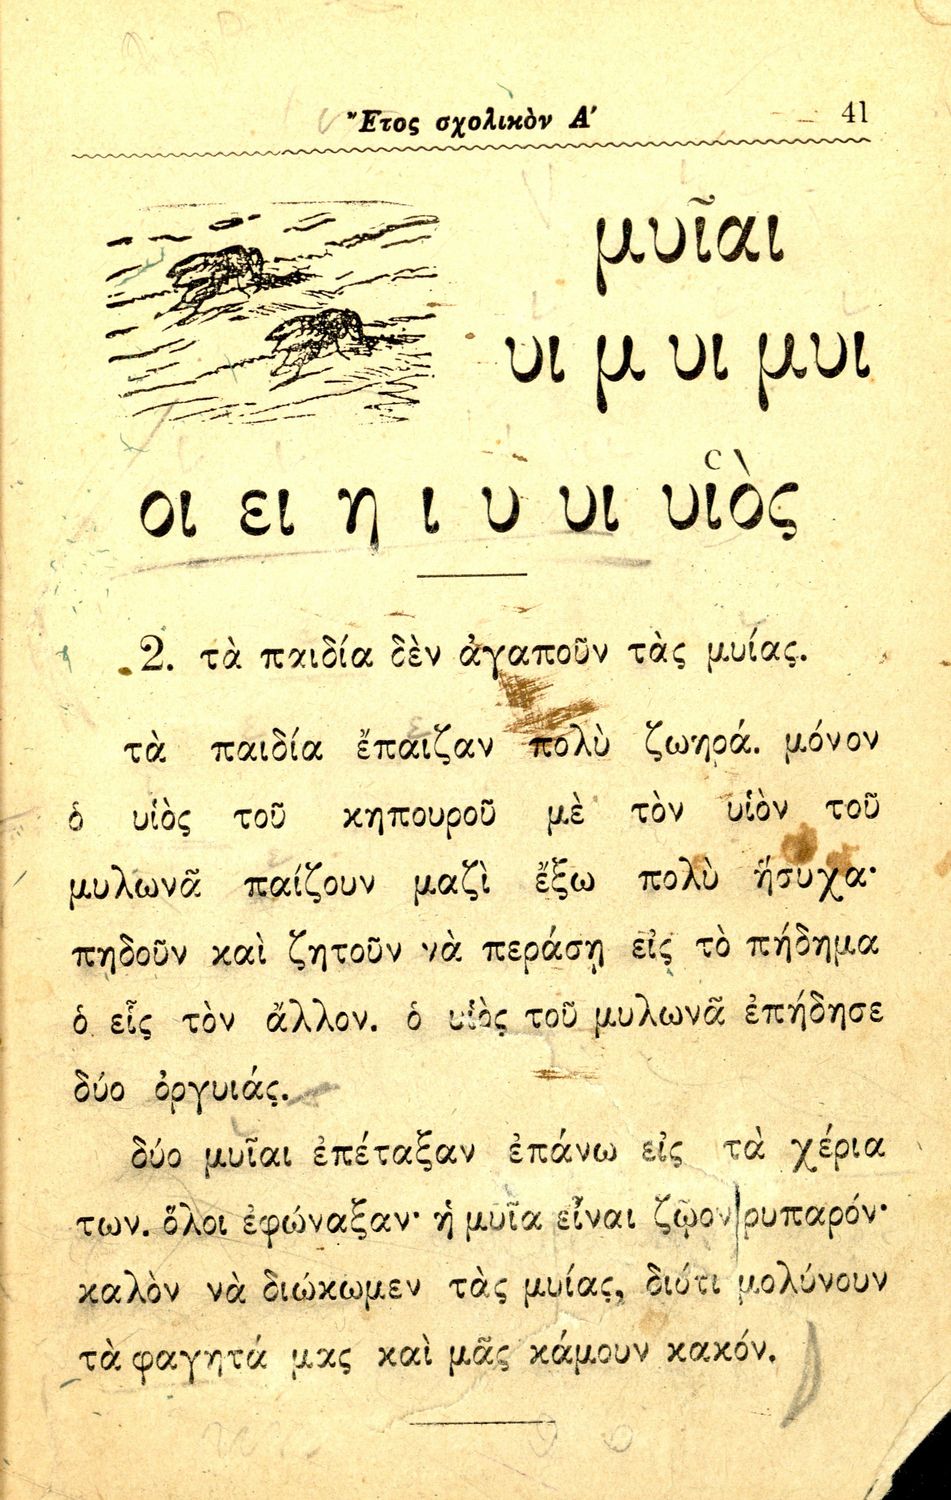 Ἔτος σχολικὸν Α' 41
μυῖαι
υι μ υι μυι
οι ει η ι υ υι υἱὸς
2. τὰ παιδία δὲν ἀγαποῦν τὰς μυίας.
τὰ παιδία ἔπαιζαν πολὺ ζωηρά. μόνον
ὁ υἱὸς τοῦ κηπουροῦ μὲ τὸν υἱὸν τοῦ
μυλωνᾶ παίζουν μαζὶ ἔξω πολὺ ἥσυχα·
πηδοῦν καὶ ζητοῦν νὰ περάσῃ εἰς τὸ πήδημα
ὁ εἷς τὸν ἄλλον. ὁ υἱὸς τοῦ μυλωνᾶ ἐπήδησε
δύο ὀργυιάς.
δύο μυῖαι ἐπέταξαν ἐπάνω εἰς τὰ χέρια
των. ὅλοι ἐφώναξαν· ἡ μυῖα εἶναι ζῷον ῥυπαρόν·
καλὸν νὰ διώκωμεν τὰς μυίας, διότι μολύνουν
τὰ φαγητά μας καὶ μᾶς κάμουν κακόν.